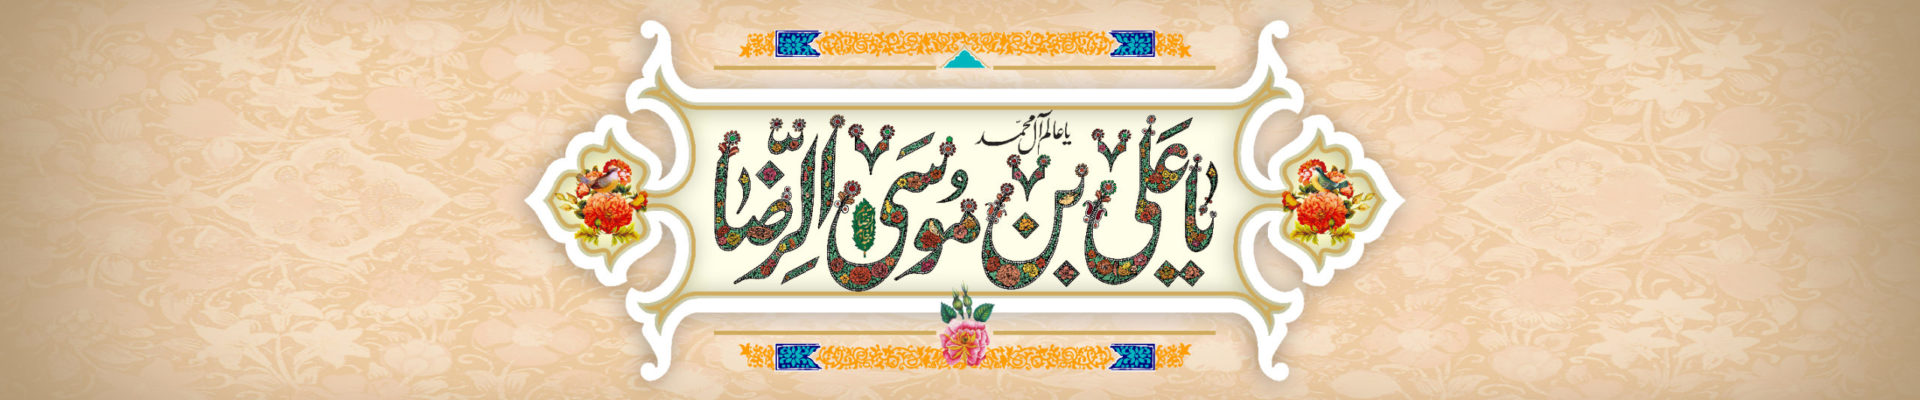 یا عالم آل محمّد
یا عَلی بن مُوسَی الرِضّا